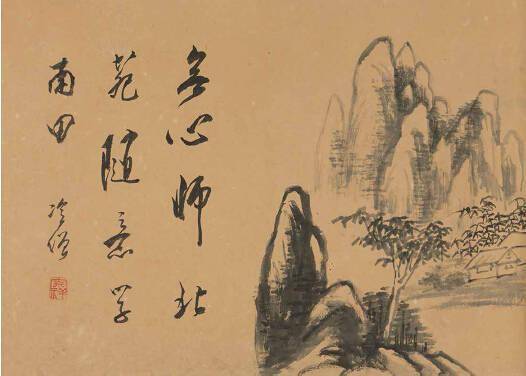 無心師北
苑隨意學
南田
冷僧